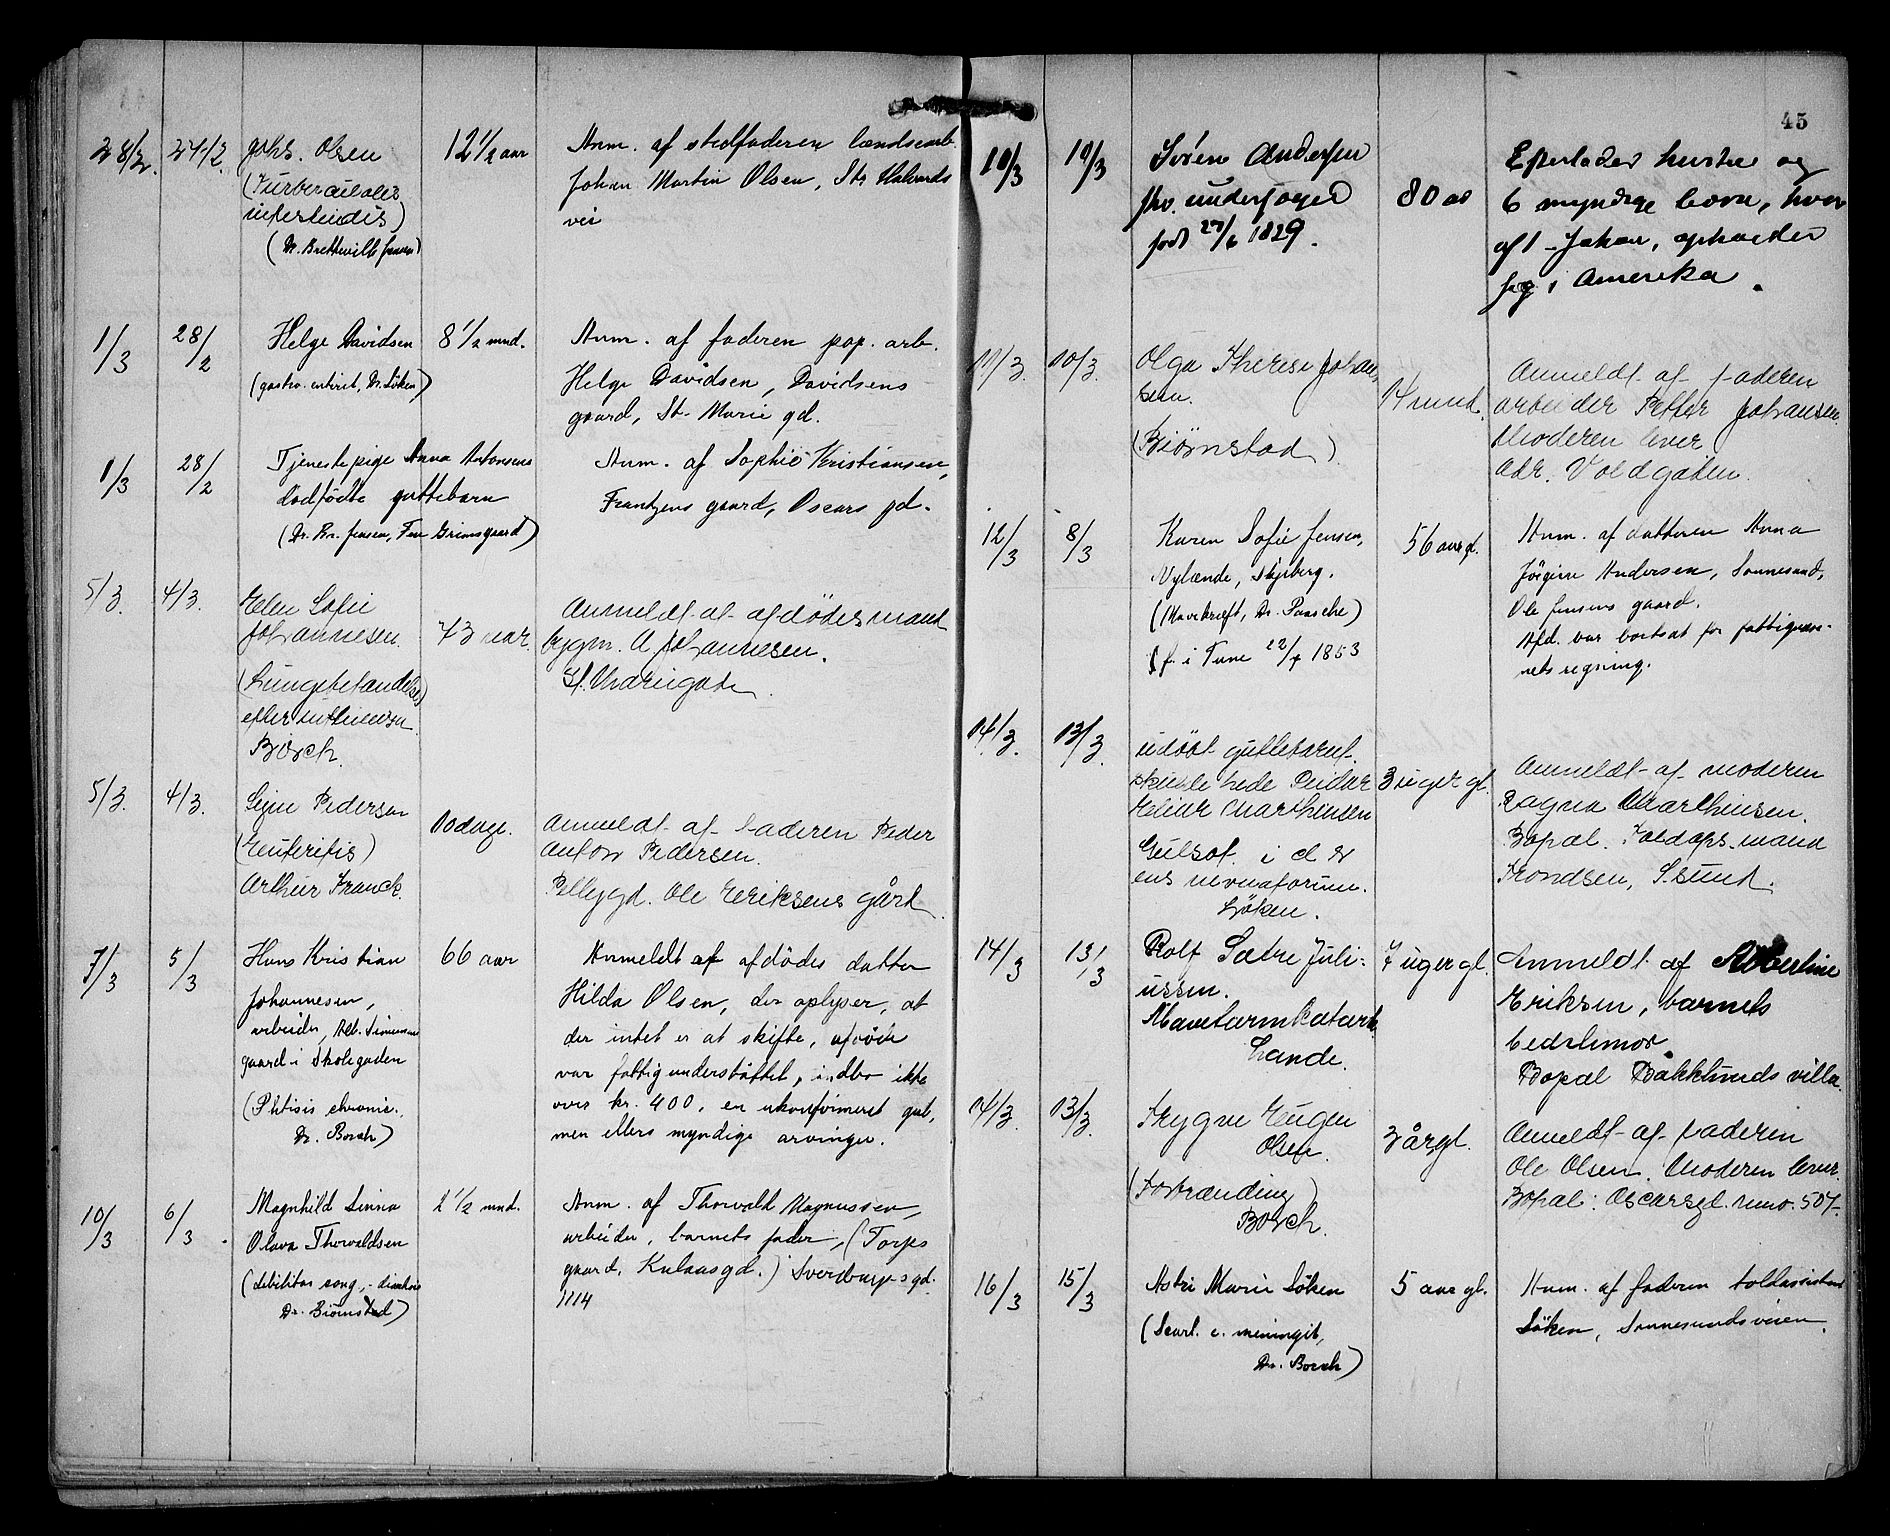 28/2. 24/2. Johs. Olsen 12 1/2 aar Anm. af stedfaderen lændsearb.
Johan Martin Olsen, St. Halvards
vei
(Dr. Bretteville Jensen)
1/3 28/2 Helge Davidsen 8 1/2 mnd. Anm. af faderen pap. arb.
(gastro-enterit, Dr. Löken) Helge Davidsen, Davidsens
gaard, St. Marie gd.
1/3 28/2 Tjenestepige Anna Antonsens Anm. af Sophie Kristiansen,
dødfödte guttebarn Frantzens gaard, Oscars gd.
(Dr. Kr. Jensen, Fru Grimsgaard)
5/3. 4/3. Elen Sofie
Johannesen. 73 aar. Anmeldt af afdödes mand
bygm. A. Johannesen.
(Lungebetændelse St. Mariegaten.
efter influensa
Borch.
5/3. 4/3. Signe Pedersen 10 dage. Anmeldt af faderen Peder
(Enteritis) Anton Pedersen.
Arthur Franck. Pellygd. Ole Eriksens gård.
7/3 5/3 Hans Kristian 66 aar Anmeldt af afdödes datter
Johannesen, Hilda Olsen, der oplyser, at
arbeider, Alb. Simensens der intet er at skifte, afdöde
gaard i Skolegaden var fattigunderstöttet, indbo ikke
(Phtisis chronic., over kr. 400, en ukonfirmeret gut,
Dr. Borch) men ellers myndige arvinger.
10/3 6/3. Magnhild Linna 2 1/2 mnd. Anm. af Thorvald Magnussen,
Olava Thorvaldsen arbeider, barnets fader, (Torps
(debilitas cong., Dr. Biörnstad) gaard, Kulaasgd.) Sverdrupsgd.
1114
45
10/3 10/3 Sören Andersen 80 aar Efterlader hustru og
fhv. underfoged 6 myndige börn, hvor
född 27/6 1829. af 1 - Johan, opholder
sig i Amerika.
11/3. 10/3. Olga Therese Johan-
sen. 14 mnd. Anmeldt af faderen
(Biörnstad) arbeider Petter Johansen.
Moderen lever.
Adr. Voldgaten.
12/3 8/3 Karen Sofie Jensen, 56 aar gl. Anm. af datteren Anna
Nylænde, Skjeberg. Jörgine Andersen, Sannesund,
(Mavekræft, Dr. Paasche) Ole Jensens gaard.
f. i Tune 22/7 1853 Afd. var bortsat for fattigvæse-
nets regning.
14/3. 13/3. udöbt guttebarn
skulde hede Reidar 3 uger gl. Anmeldt af moderen
Einar Marthinsen Ragna Marthinsen.
Gulsot. Bopæl. Toldops.mand
neonatorum. Trondsen, S.sund.
Löken.
14/3 13/3 Rolf Sætre Juli- 7 uger gl. Anmeldt af Albertine
ussen. Eriksen, barnets
Mavetarmkatarrh. bedstemor.
Lande. Bopæl Bakklunds villa.
14/3. 13/3. Trygve Eugen 3 år gl. Anmeldt af faderen
Olsen. Ole Olsen. Moderen lever.
(Forbrænding) Bopæl: Oscarsgd. nmo. 507.
Borch.
16/3 15/3 Astri Marie Löken 5 aar gl. Anm. af faderen toldassistent
(Scarl. c. meningit, Löken, Sannesundsveien.
Dr. Borch)